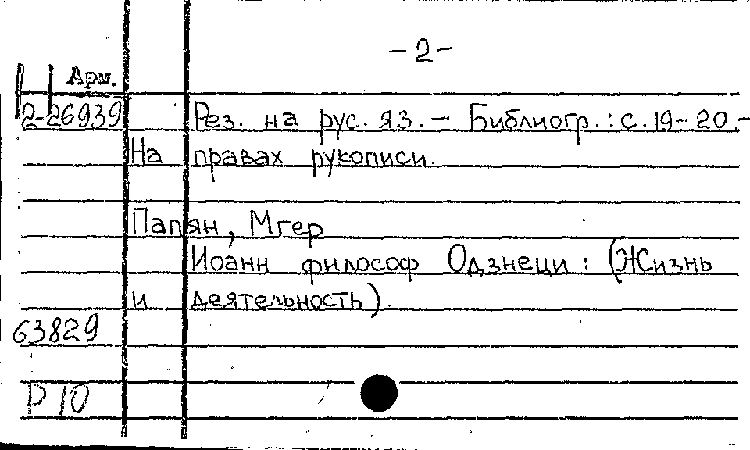 -2-
Арм.
2-26939 Рез. на рус. яз. - Библиогр.: с. 19-20.-
На правах рукописи.
Папян, Мгер
Иоанн философ Одзнеци: (Жизнь
и деятельность).
63829
Р 10